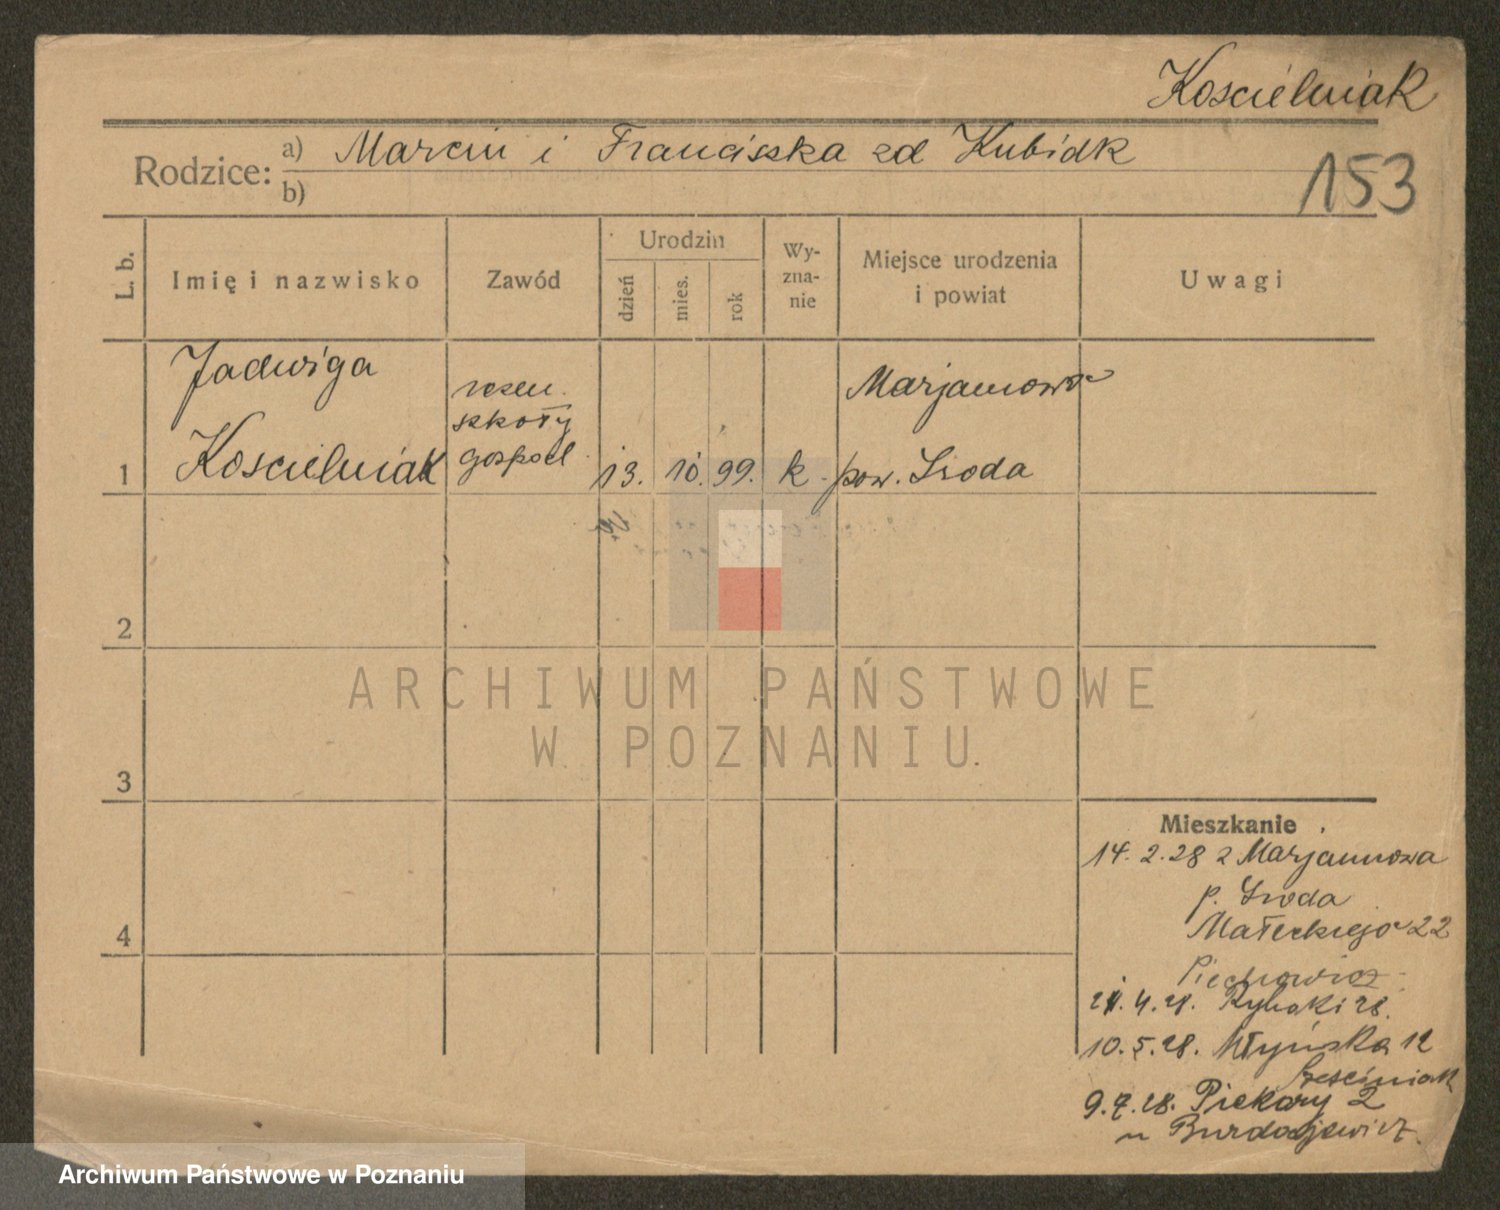 Koscielniak
Rodzice:
a) Marcin i Franciszka zd Kubiak
b)
153
L. b.
Imię i nazwisko
Zawód
Urodzin
dzień
mies.
rok
Wy-
zna-
nie
Miejsce urodzenia
i powiat
Uwagi
1
Jadwiga
Koscielniak
szkoły
gospod
13. 10. 99. k.
Marjanowo
pow. Sroda
2
3
4
Mieszkanie
14. 2. 28 z Marjanowa
p. Sroda
Małeckiego 22
Piechowicz
4. 28. Rybaki 28.
10. 5. 28. Młyńska 12
Sześciniak
9. 7. 28. Piekary 2
u Burdajewicz.
ARCHIWUM PAŃSTWOWE
W POZNANIU
Archiwum Państwowe w Poznaniu